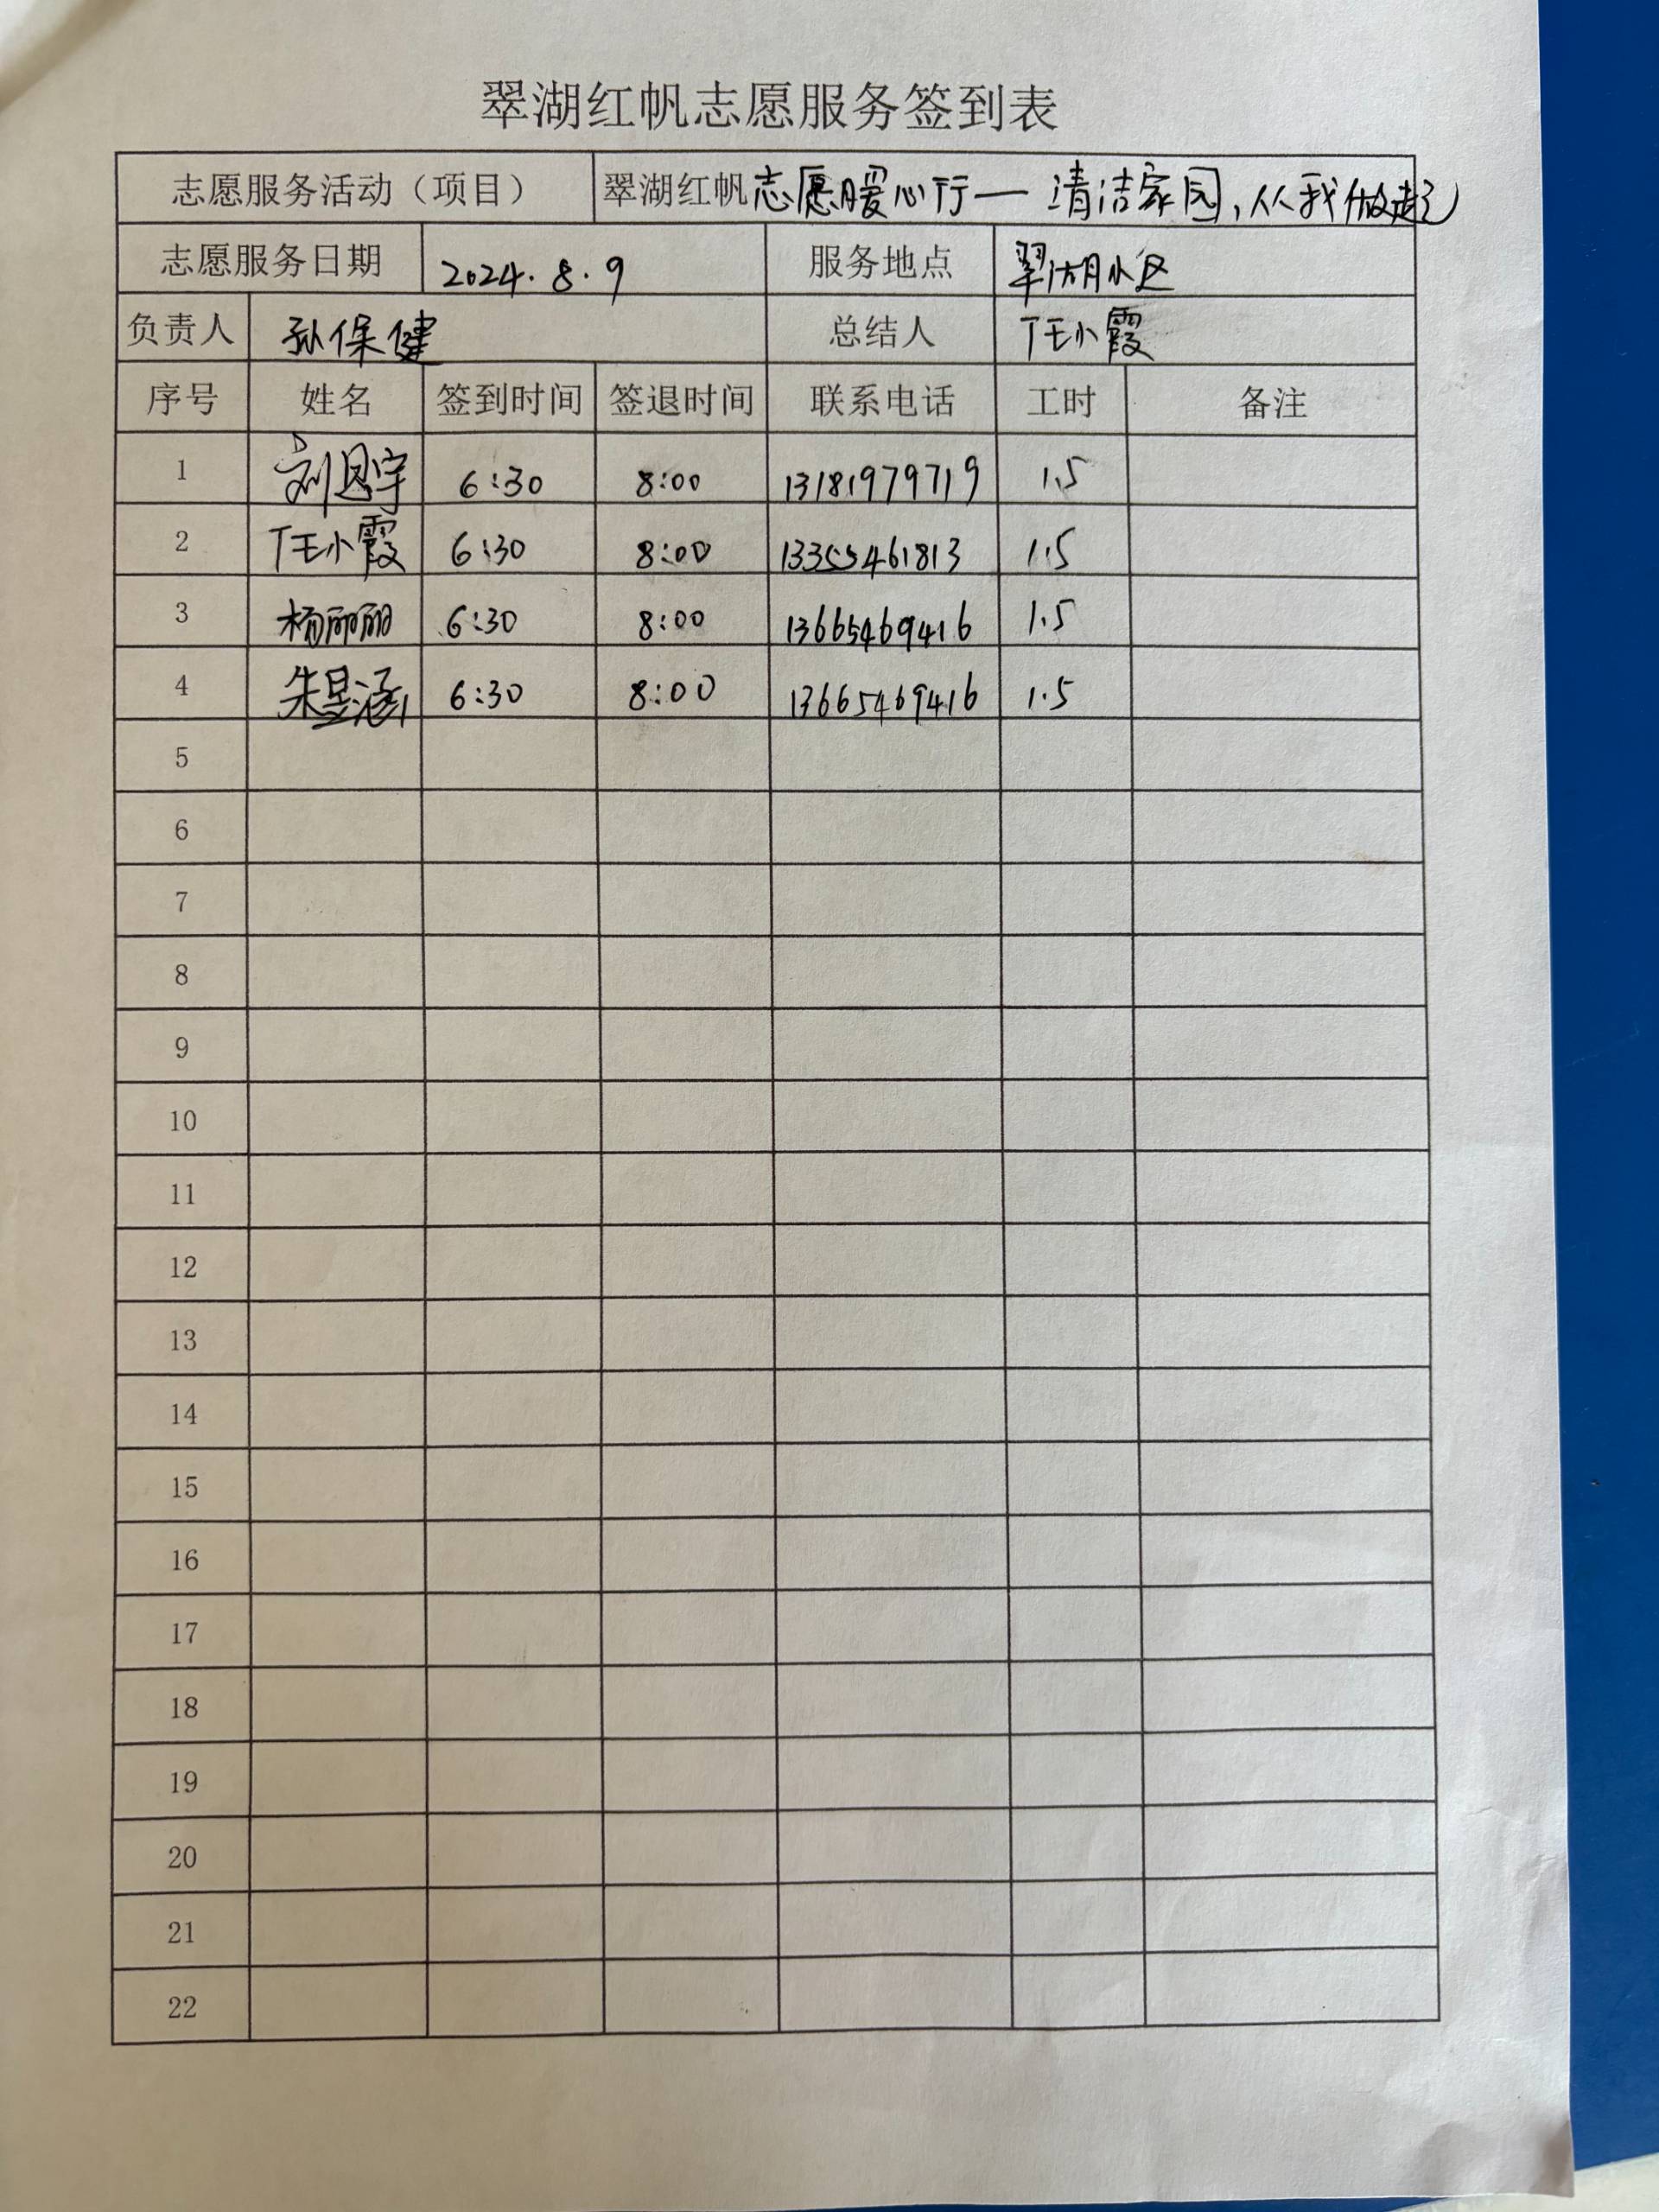 翠湖红帆志愿服务签到表
志愿服务活动（项目） 翠湖红帆志愿暖心行一清洁家园,从我做起
志愿服务日期 2024.8.9 服务地点 翠湖小区
负责人 孙保健 总结人 任小霞
序号 姓名 签到时间 签退时间 联系电话 工时 备注
1 刘恩宇 6:30 8:00 13181979719 1.5
2 任小霞 6:30 8:00 13355461813 1.5
3 杨丽丽 6:30 8:00 13665469416 1.5
4 朱昱涵 6:30 8:00 13665469416 1.5
5
6
7
8
9
10
11
12
13
14
15
16
17
18
19
20
21
22